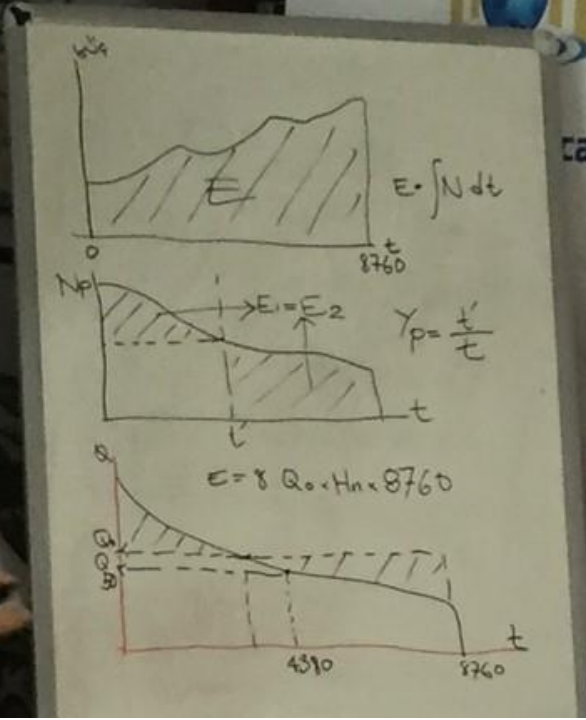 güç
E
E = ∫N dt
0
t
8760
Np
E₁ = E₂
Yp = t'/t
t'
t
Q
E = 8 Q₀ × Hn × 8760
Q₀
Q
50
4380
8760
t
ca